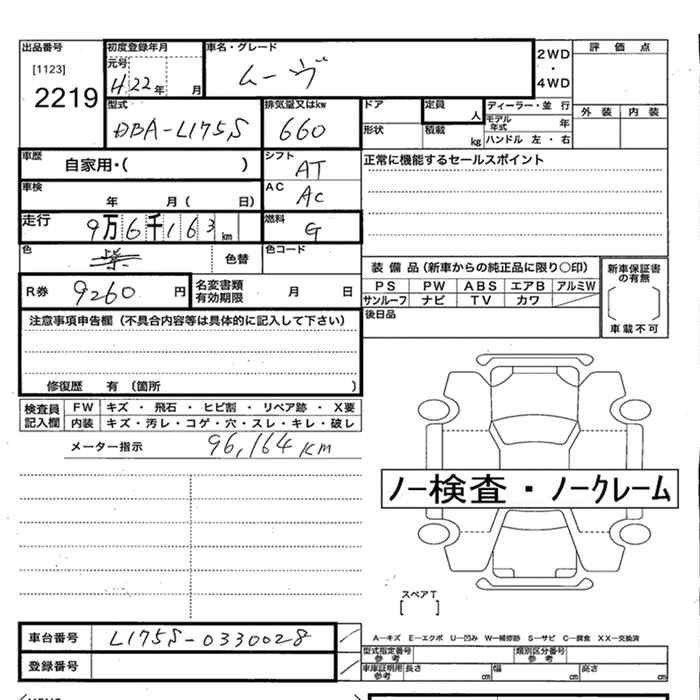 出品番号
[1123]
2219
初度登録年月
元号
H22年 月
車名・グレード
ムーヴ
2WD
・
4WD
評価点
外装 内装
型式
DBA-L175S
排気量又はkw
660
ドア
形状
定員
人
積載
kg
ディーラー・並 行
モデル年式 年
ハンドル 左・右
車歴
自家用・( )
シフト
AT
正常に機能するセールスポイント
車検
年 月( 日)
AC
AC
走行
9万6千163km
燃料
G
色
紫
色替
色コード
R券 9260 円
名変書類有効期限 月 日
装備品(新車からの純正品に限り○印)
PS PW ABS エアB アルミW
サンルーフ ナビ TV カワ
新車保証書の有無
[ ]
車載不可
後日品
注意事項申告欄(不具合内容等は具体的に記入して下さい)
修復歴 有(箇所 )
検査員記入欄
FW キズ・飛石・ヒビ割・リペア跡・X要
内装 キズ・汚レ・コゲ・穴・スレ・キレ・破レ
メーター指示 96,164KM
ノー検査・ノークレーム
スペアT
[ ]
車台番号 L175S-0330028
登録番号
A―キズ E―エクボ U―凹み W―補修跡 S―サビ C―腐食 XX―交換済
型式指定番号参考
類別区分番号参考
車庫証明用参考 長さ cm 幅 cm 高さ cm